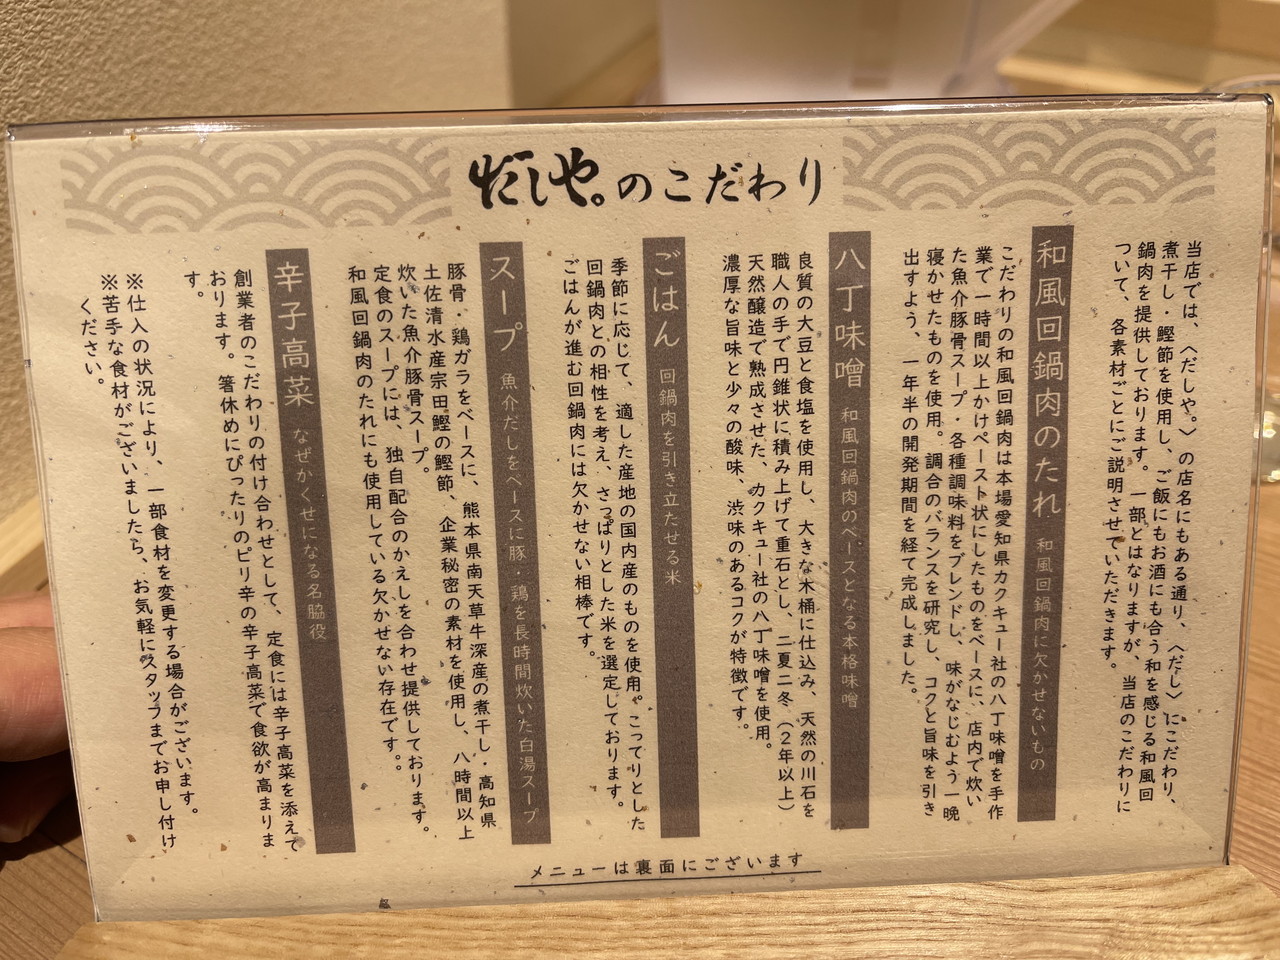 だしや。のこだわり
当店では、〈だしや。〉の店名にもある通り、〈だし〉にこだわり、
煮干し・鰹節を使用し、ご飯にもお酒にも合う和を感じる和風回
鍋肉を提供しております。一部とはなりますが、当店のこだわりに
ついて、各素材ごとにご説明させていただきます。
和風回鍋肉のたれ 和風回鍋肉に欠かせないもの
こだわりの和風回鍋肉は本場愛知県カクキュー社の八丁味噌を手作
業で一時間以上かけペースト状にしたものをベースに、店内で炊い
た魚介豚骨スープ・各種調味料をブレンドし、味がなじむよう一晩
寝かせたものを使用。調合のバランスを研究し、コクと旨味を引き
出すよう、一年半の開発期間を経て完成しました。
八丁味噌 和風回鍋肉のベースとなる本格味噌
良質の大豆と食塩を使用し、大きな木桶に仕込み、天然の川石を
職人の手で円錐状に積み上げて重石とし、二夏二冬（２年以上）
天然醸造で熟成させた、カクキュー社の八丁味噌を使用。
濃厚な旨味と少々の酸味、渋味のあるコクが特徴です。
ごはん 回鍋肉を引き立たせる米
季節に応じて、適した産地の国内産のものを使用。こってりとした
回鍋肉との相性を考え、さっぱりとした米を選定しております。
ごはんが進む回鍋肉には欠かせない相棒です。
スープ 魚介だしをベースに豚・鶏を長時間炊いた白湯スープ
豚骨・鶏ガラをベースに、熊本県南天草牛深産の煮干し・高知県
土佐清水産宗田鰹の鰹節、企業秘密の素材を使用し、八時間以上
炊いた魚介豚骨スープ。
定食のスープには、独自配合のかえしを合わせ提供しております。
和風回鍋肉のたれにも使用している欠かせない存在です。。
辛子高菜 なぜかくせになる名脇役
創業者のこだわりの付け合わせとして、定食には辛子高菜を添えて
おります。箸休めにぴったりのピリ辛の辛子高菜で食欲が高まりま
す。
※仕入の状況により、一部食材を変更する場合がございます。
※苦手な食材がございましたら、お気軽にスタッフまでお申し付け
ください。
メニューは裏面にございます